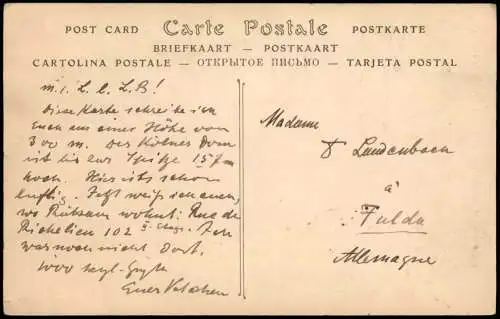 POST CARD Carte Postale POSTKARTE
BRIEFKAART — POSTKAART
CARTOLINA POSTALE — ОТКРЫТОЕ ПИСЬМО — TARJETA POSTAL
M. l. L. l. L. B!
Diese Karte schreibe ich
Euch aus einer Höhe von
300 m. Der Kölner Dom
ist bis zur Spitze 157 m
hoch. Hier ists schon
luftig. Jetzt weiß ich auch,
wo Rübsam wohnt: Rue de
Richelieu 102 Ich
war noch nicht dort.
1000
Euer
Madame
Laudenbach
à
Fulda
Allemagne